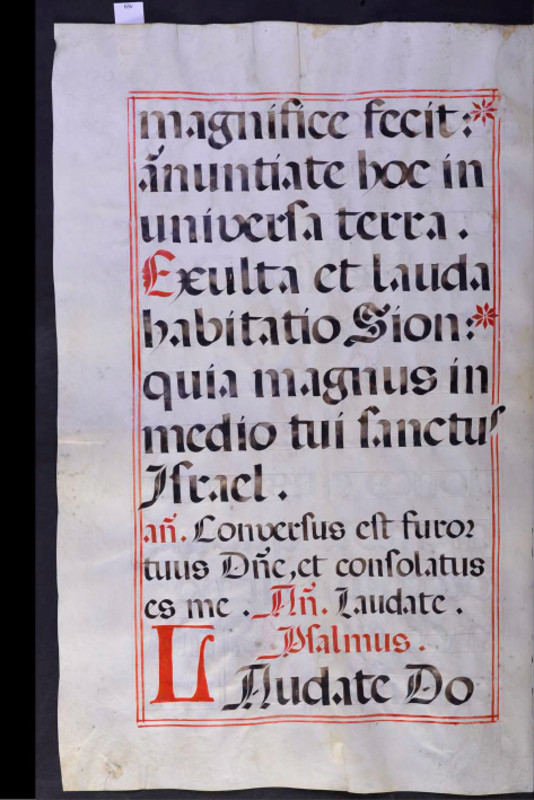 magnifice fecit:*
ãnuntiate hoc in
universa terra.
Exulta et lauda
habitatio Sion:*
quia magnus in
medio tui sanctus
Israel.
añ. Conversus est furor
tuus Dñe, et consolatus
es me. Añ. Laudate.
Psalmus.
LAudate Do